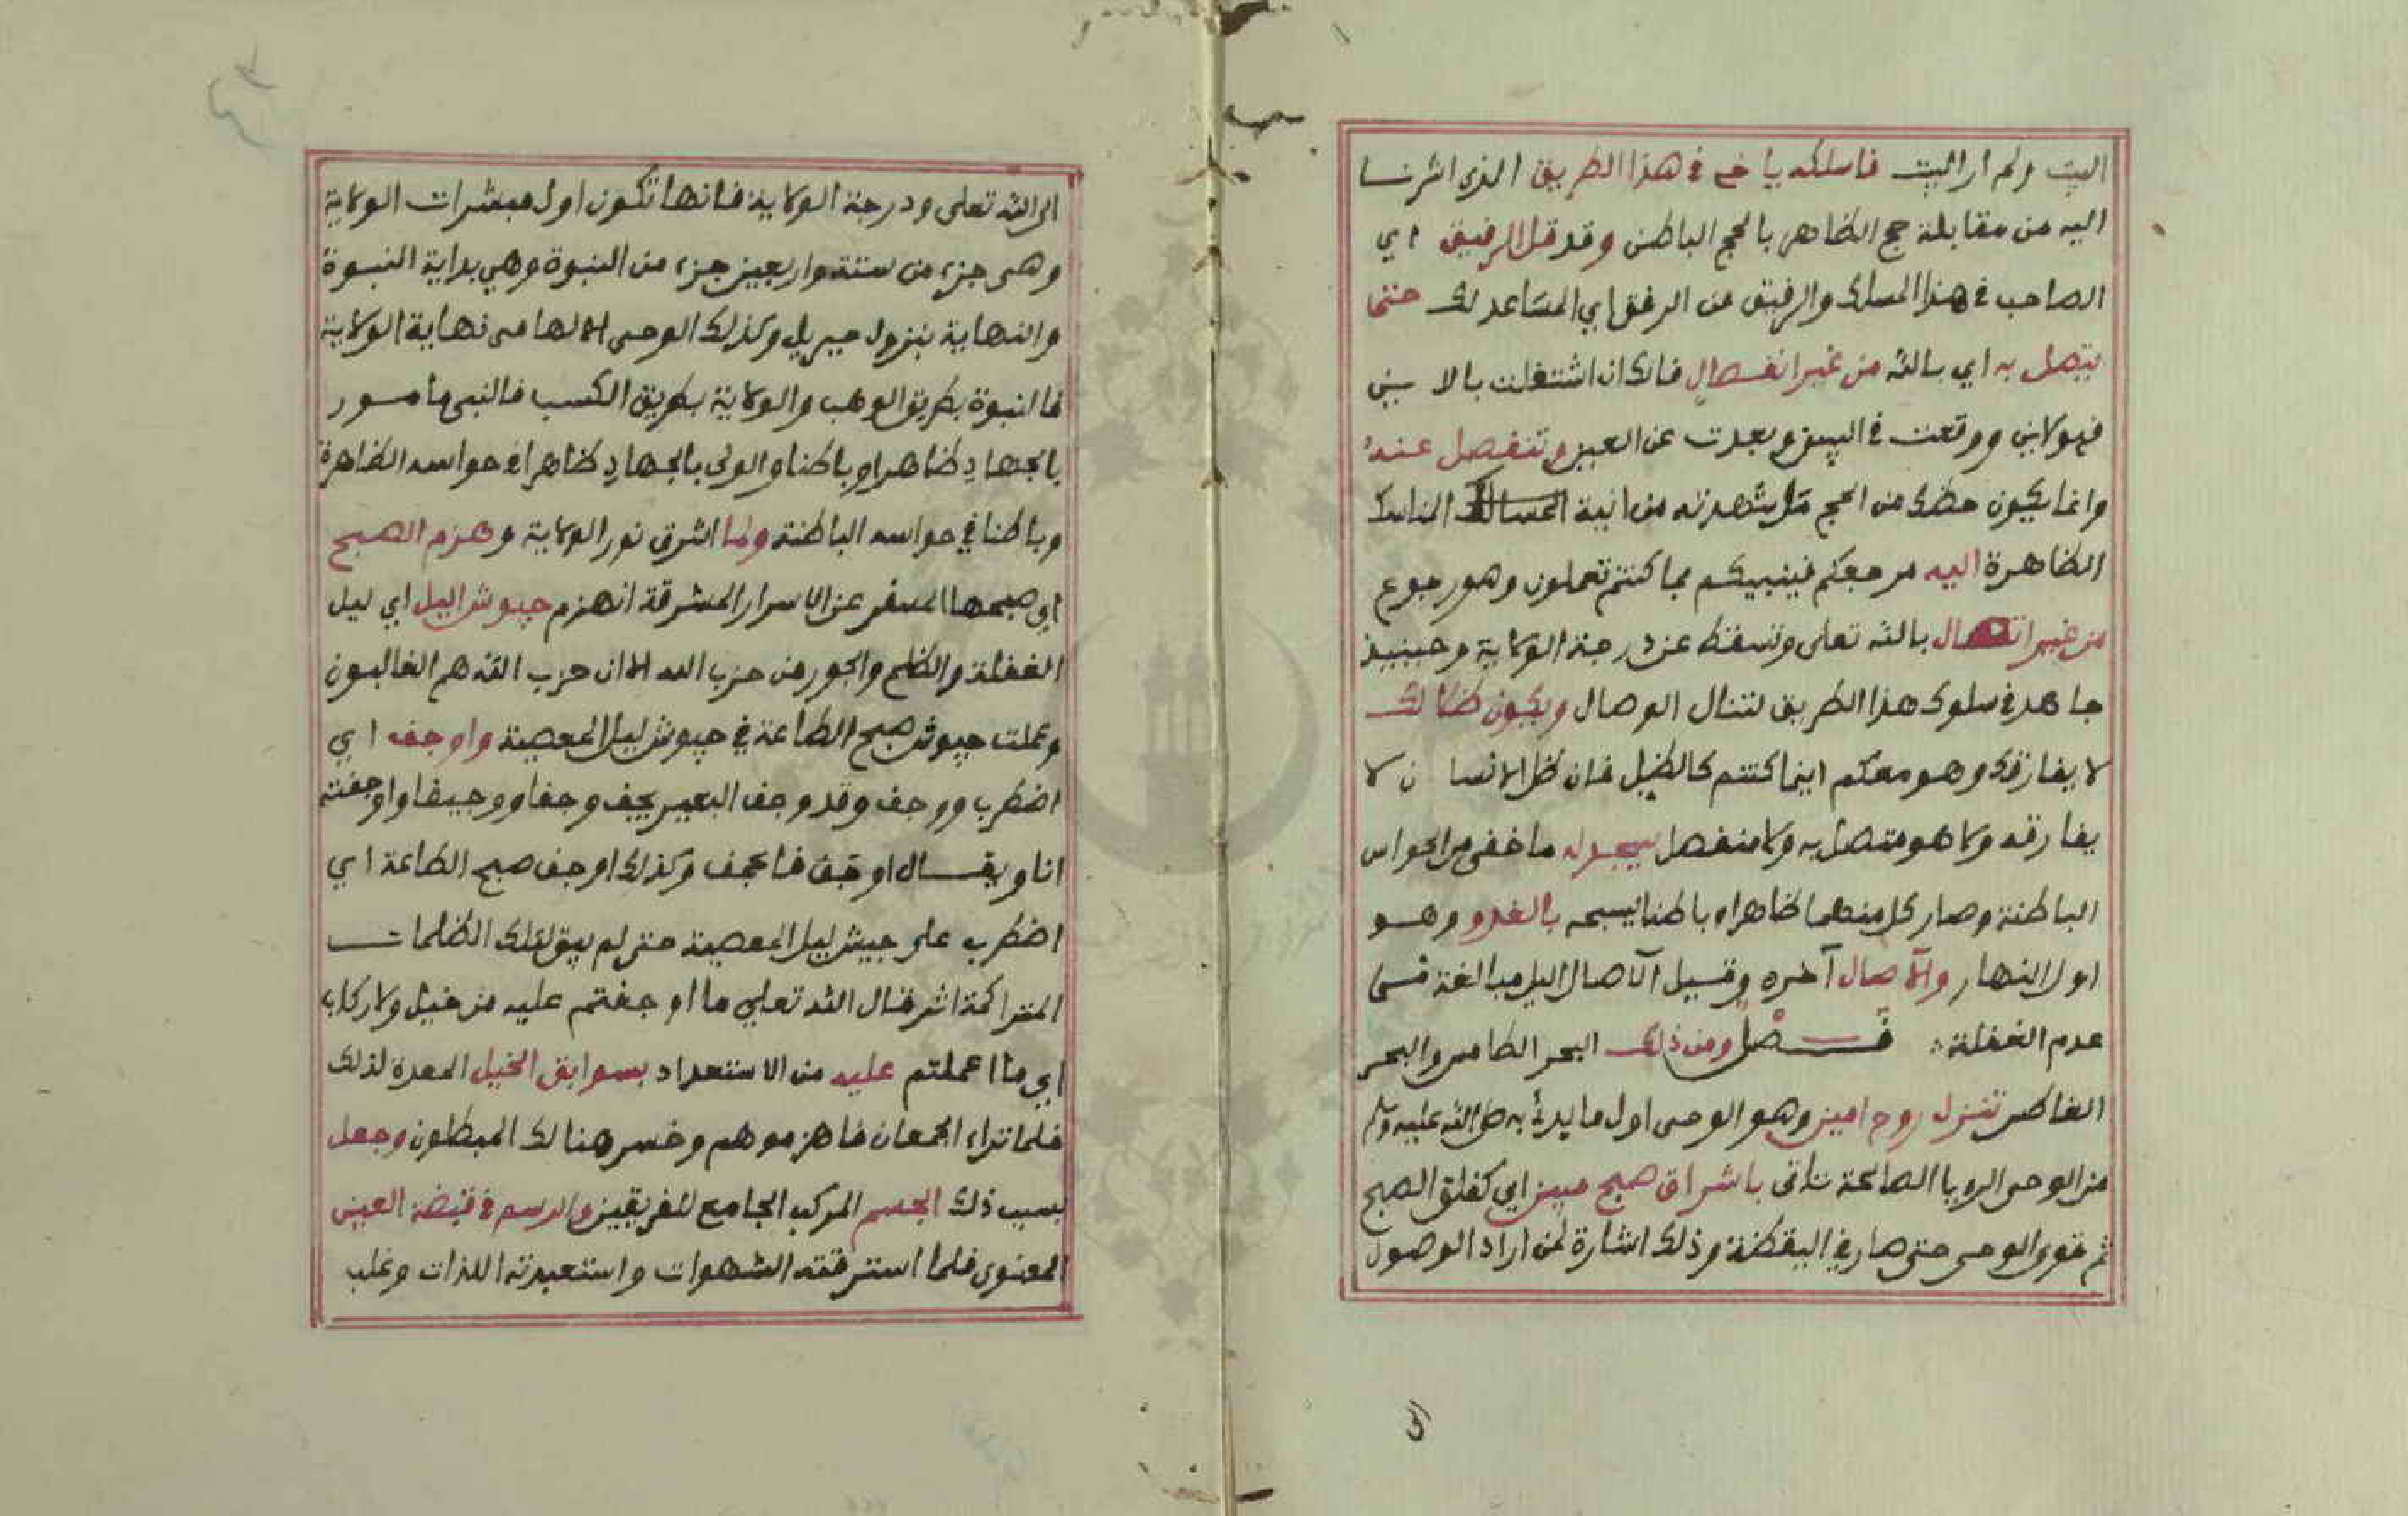 البيت ولم ار البيت فاسلكه يا خي في هذا الطريق الذي اشرنا
اليه من مقابلة حج الظاهر بالحج الباطن وقد قل الرفيق اي
الصاحب في هذا المسلك والرفيق من الرفق اي المساعد لك حتى
يتصل به اي بالله من غير انفصال فانك ان اشتغلت بالا ين
فهو لاين ووقعت في البين وبعدت عن العين وتنفصل عنه
وانما يكون حظك من الحج شهدته من ابنية المناسك
الظاهرة اليه مرجعكم فينبيكم بما كنتم تعملون وهو رجوع
من غير اتصال بالله تعلى وتسقط عن درجة الولاية وحينيذ
جاهد في سلوك هذا الطريق لتنال الوصال ويكون ظلالك
لا يفارقك وهو معكم اينما كنتم كالظل فان ظل الانسا ن لا
يفارقه ولا هو متصل به ولا منفصل يسجد له ما خفى من الحواس
الباطنة وصار كل منهما ظاهرا وباطنا يسبحه بالغدو وهو
اول النهار والآصال آخره وقيل الآصال اليل مبالغة في
عدم الغفلة فصل ومن ذلك البحر الطامس والبحر
الغاطس تنزل روح امين وهو الوحى اول ما بدئ به صلى الله عليه وسلم
من الوحى الرويا الصالحة تاتى باشراق صبح مبين اي كفلق الصبح
ثم قوى الوحى حتى صار في اليقظة وذلك اشارة لمن اراد الوصول
الى
الى الله تعلى ودرجة الولاية فانها تكون اول مبشرات الولاية
وهى جزء من ستة واربعين جزء من النبوة وهي بداية النبوة
والنهاية بنزول جبريل وكذلك الوحى الالهامى نهاية الولاية
فالنبوة بطريق الوهب والولاية بطريق الكسب فالنبى مامور
بالجهاد ظاهرا وباطنا والولى بالجهاد ظاهرا في حواسه الظاهرة
وباطنا في حواسه الباطنة ولما اشرق نور الولاية وهزم الصبح
اي صبحها المسفر عن الاسرار المشرقة انهزم جيوش اليل اي ليل
الغفلة والظلم والجور من حزب الله الا ان حزب الله هم الغالبون
وعملت جيوش صبح الطاعة في جيوش ليل المعصية واوجف اي
اضطرب ووجف وقد وجف البعير يجف وجفا ووجيفا واوجفته
انا ويقال اوجف فاعجف وكذلك اوجف صبح الطاعة اي
اضطرب على جيش ليل المعصية حتى لم يبق لتلك الظلمات
المتراكمة اثر قال الله تعلي ما اوجفتم عليه من خيل ولا ركاب
اي ما اعملتم عليه من الاستعداد بسوابق الخيل المعدة لذلك
فلما تراء الجمعان فاهزموهم وخسر هنالك المبطلون وجعل
بسبب ذلك الجسم المركب الجامع للفريقين والرسم في قبضة العين
المعنوى فلما استرقته الشهوات واستعبدته اللذات وغلب